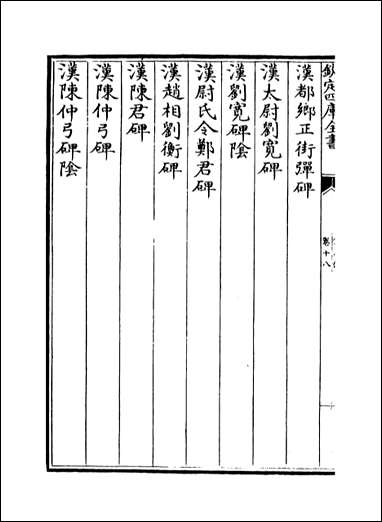 欽定四庫全書
卷十八
漢都鄉正街彈碑
漢太尉劉寬碑
漢劉寬碑陰
漢尉氏令鄭君碑
漢趙相劉衡碑
漢陳君碑
漢陳仲弓碑
漢陳仲弓碑陰